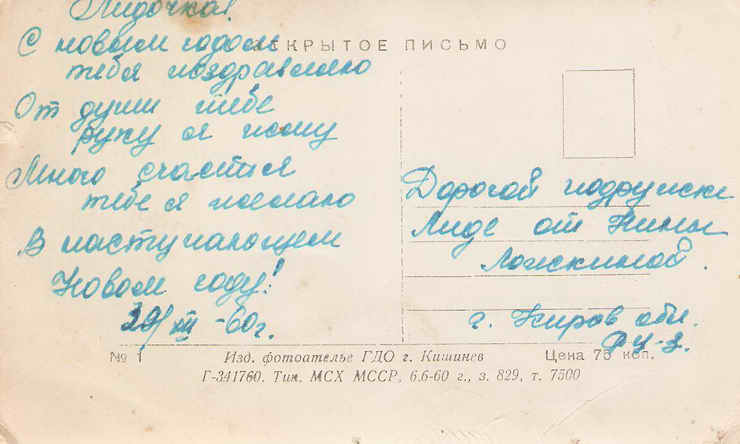 Лидочка!
С новым годом
тебя поздравляю
От души тебе
руку я пожму
Много счастья
тебе я пожелаю
В наступающем
Новом году!
29/XII -60г.
ОТКРЫТОЕ ПИСЬМО
Дорогой подружке
Лиде от Нины
Ложкиной.
г. Киров обл.
РУ-3.
№ 1 Изд. фотоателье ГДО г. Кишинев Цена 75 коп.
Г-341760. Тип. МСХ МССР, 6.6-60 г., з. 829, т. 7500